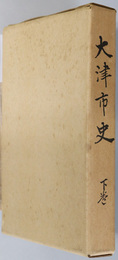 大津市史
下巻